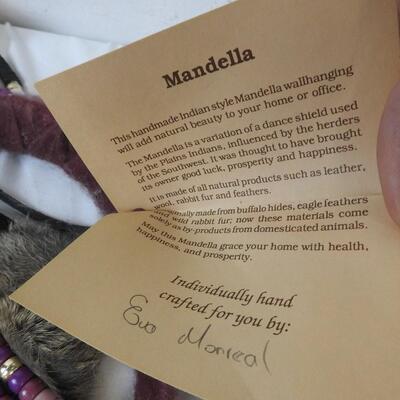 Mandella
This handmade Indian style Mandella wallhanging
will add natural beauty to your home or office.
The Mandella is a variation of a dance shield used
by the Plains Indians, influenced by the herders
of the Southwest. It was thought to have brought
its owner good luck, prosperity and happiness.
It is made of all natural products such as leather,
wool, rabbit fur and feathers.
made from buffalo hides, eagle feathers
and wild rabbit fur; now these materials come
solely as by-products from domesticated animals.
May this Mandella grace your home with health,
happiness, and prosperity.
Individually hand
crafted for you by:
Eva Monreal